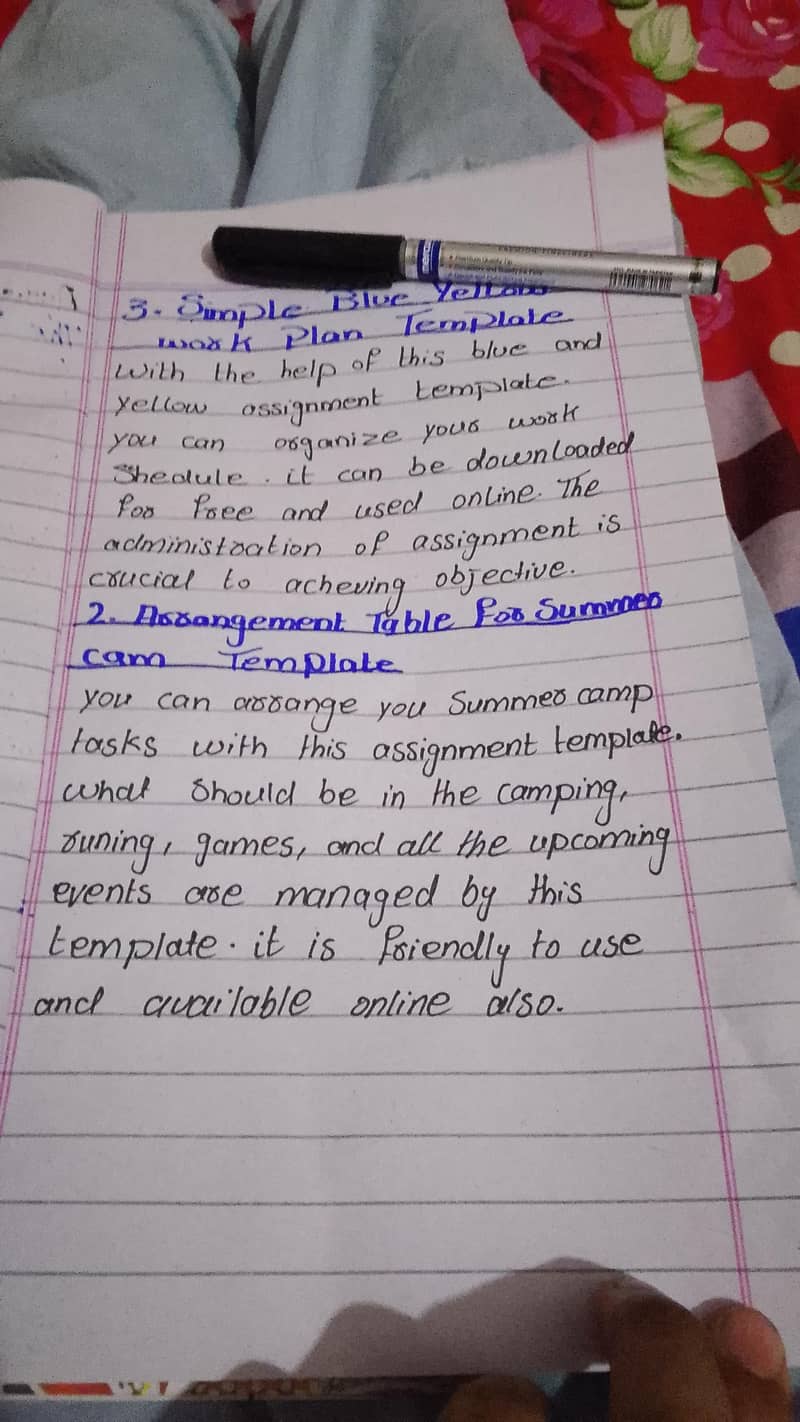 3. Simple Blue Yellow
work Plan Template
with the help of this blue and
yellow assignment template.
you can organize your work
Shedule. it can be downloaded
for free and used online. The
administration of assignment is
crucial to acheving objective.
2. Arrangement Table for Summer
cam Template
you can arrange you Summer camp
tasks with this assignment template.
what should be in the camping,
runing, games, and all the upcoming
events are managed by this
template. it is friendly to use
and available online also.